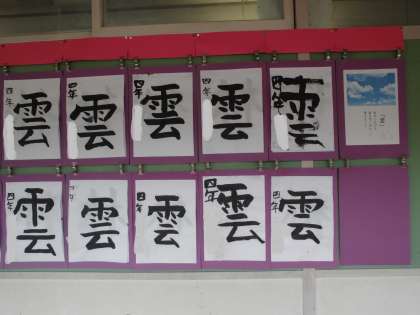 雲
四年
雲
四年
雲
四年
雲
四年
雲
四年
「雲」
雲
四年
雲
雲
四年
雲
四年
雲
四年